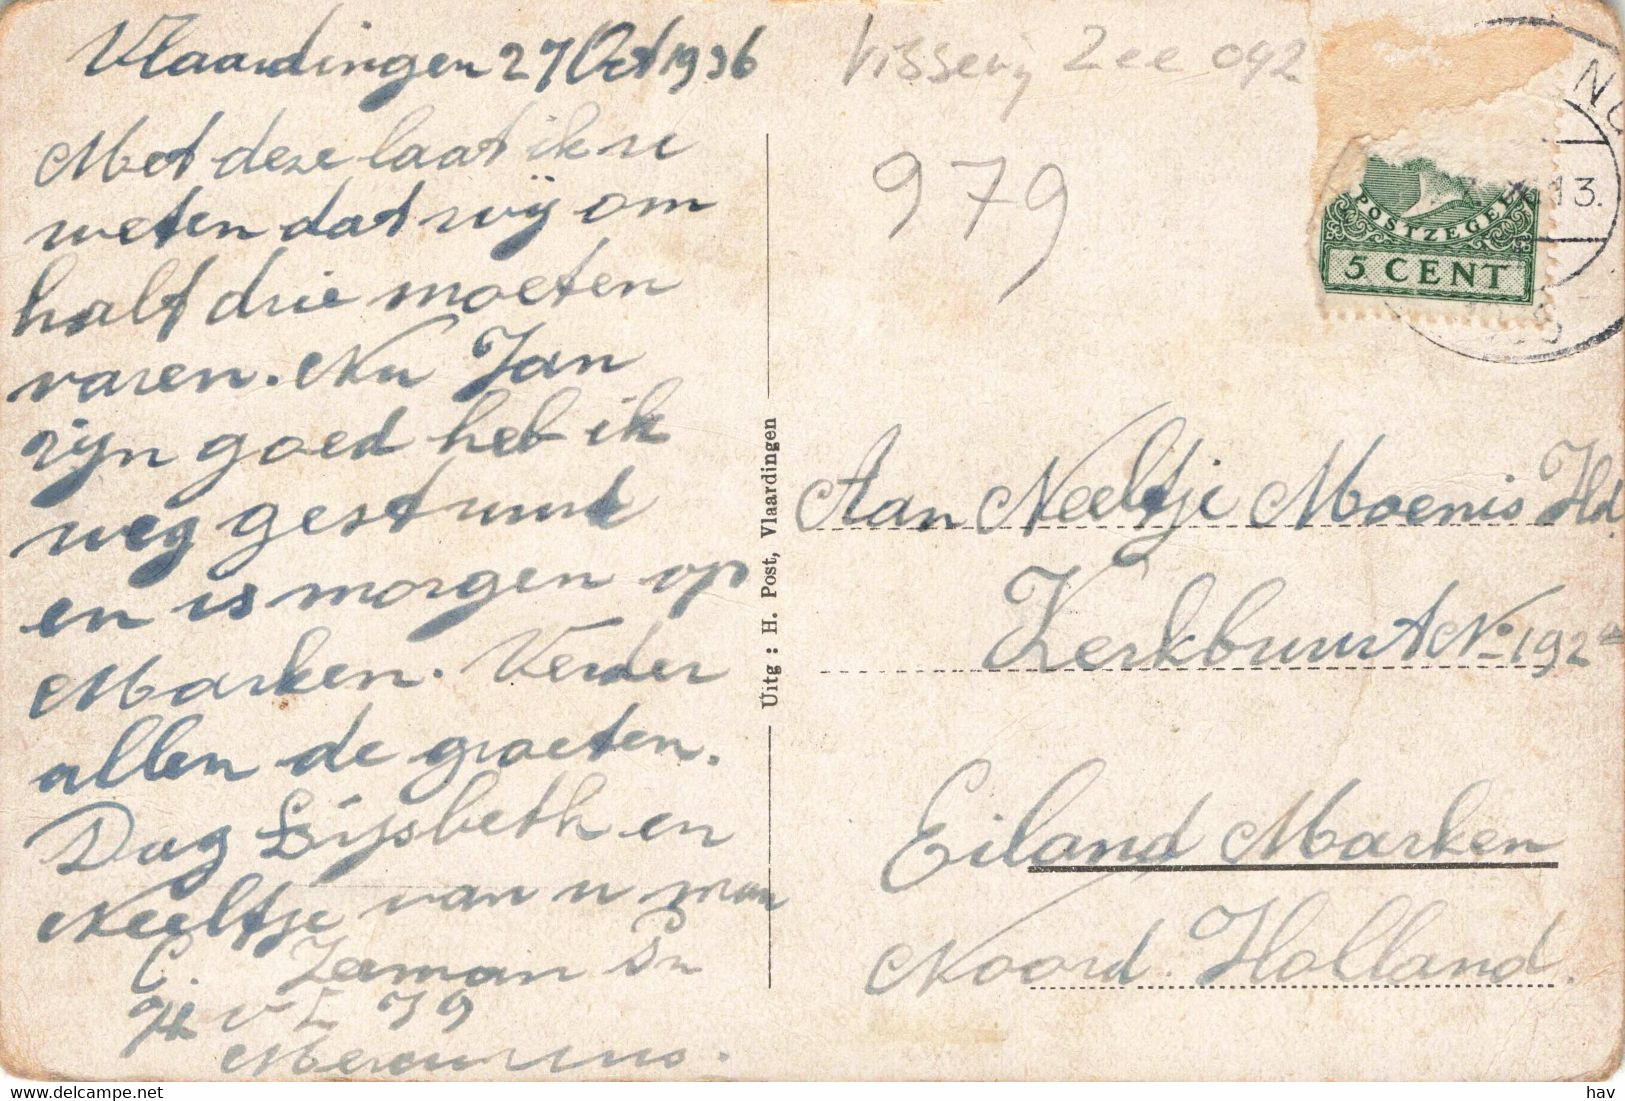 Vlaardingen 27 Oct 1936
Met deze laat ik u
weten dat wij om
half drie moeten
varen. Nu Jan
zijn goed heb ik
weg gestuurd
en is morgen op
Marken. Verder
allen de groeten.
Dag Lijsbeth en
Neeltje van u man
C. Zeeman Sn
VL 79
Mercurius.
Uitg : H. Post, Vlaardingen
Visserij Zee 092
979
POSTZEGEL
5 CENT
13.
Aan Neeltje Moenis Hd.
Kerkbuurt No 192
Eiland Marken
Noord. Holland.
www.delcampe.net
hav